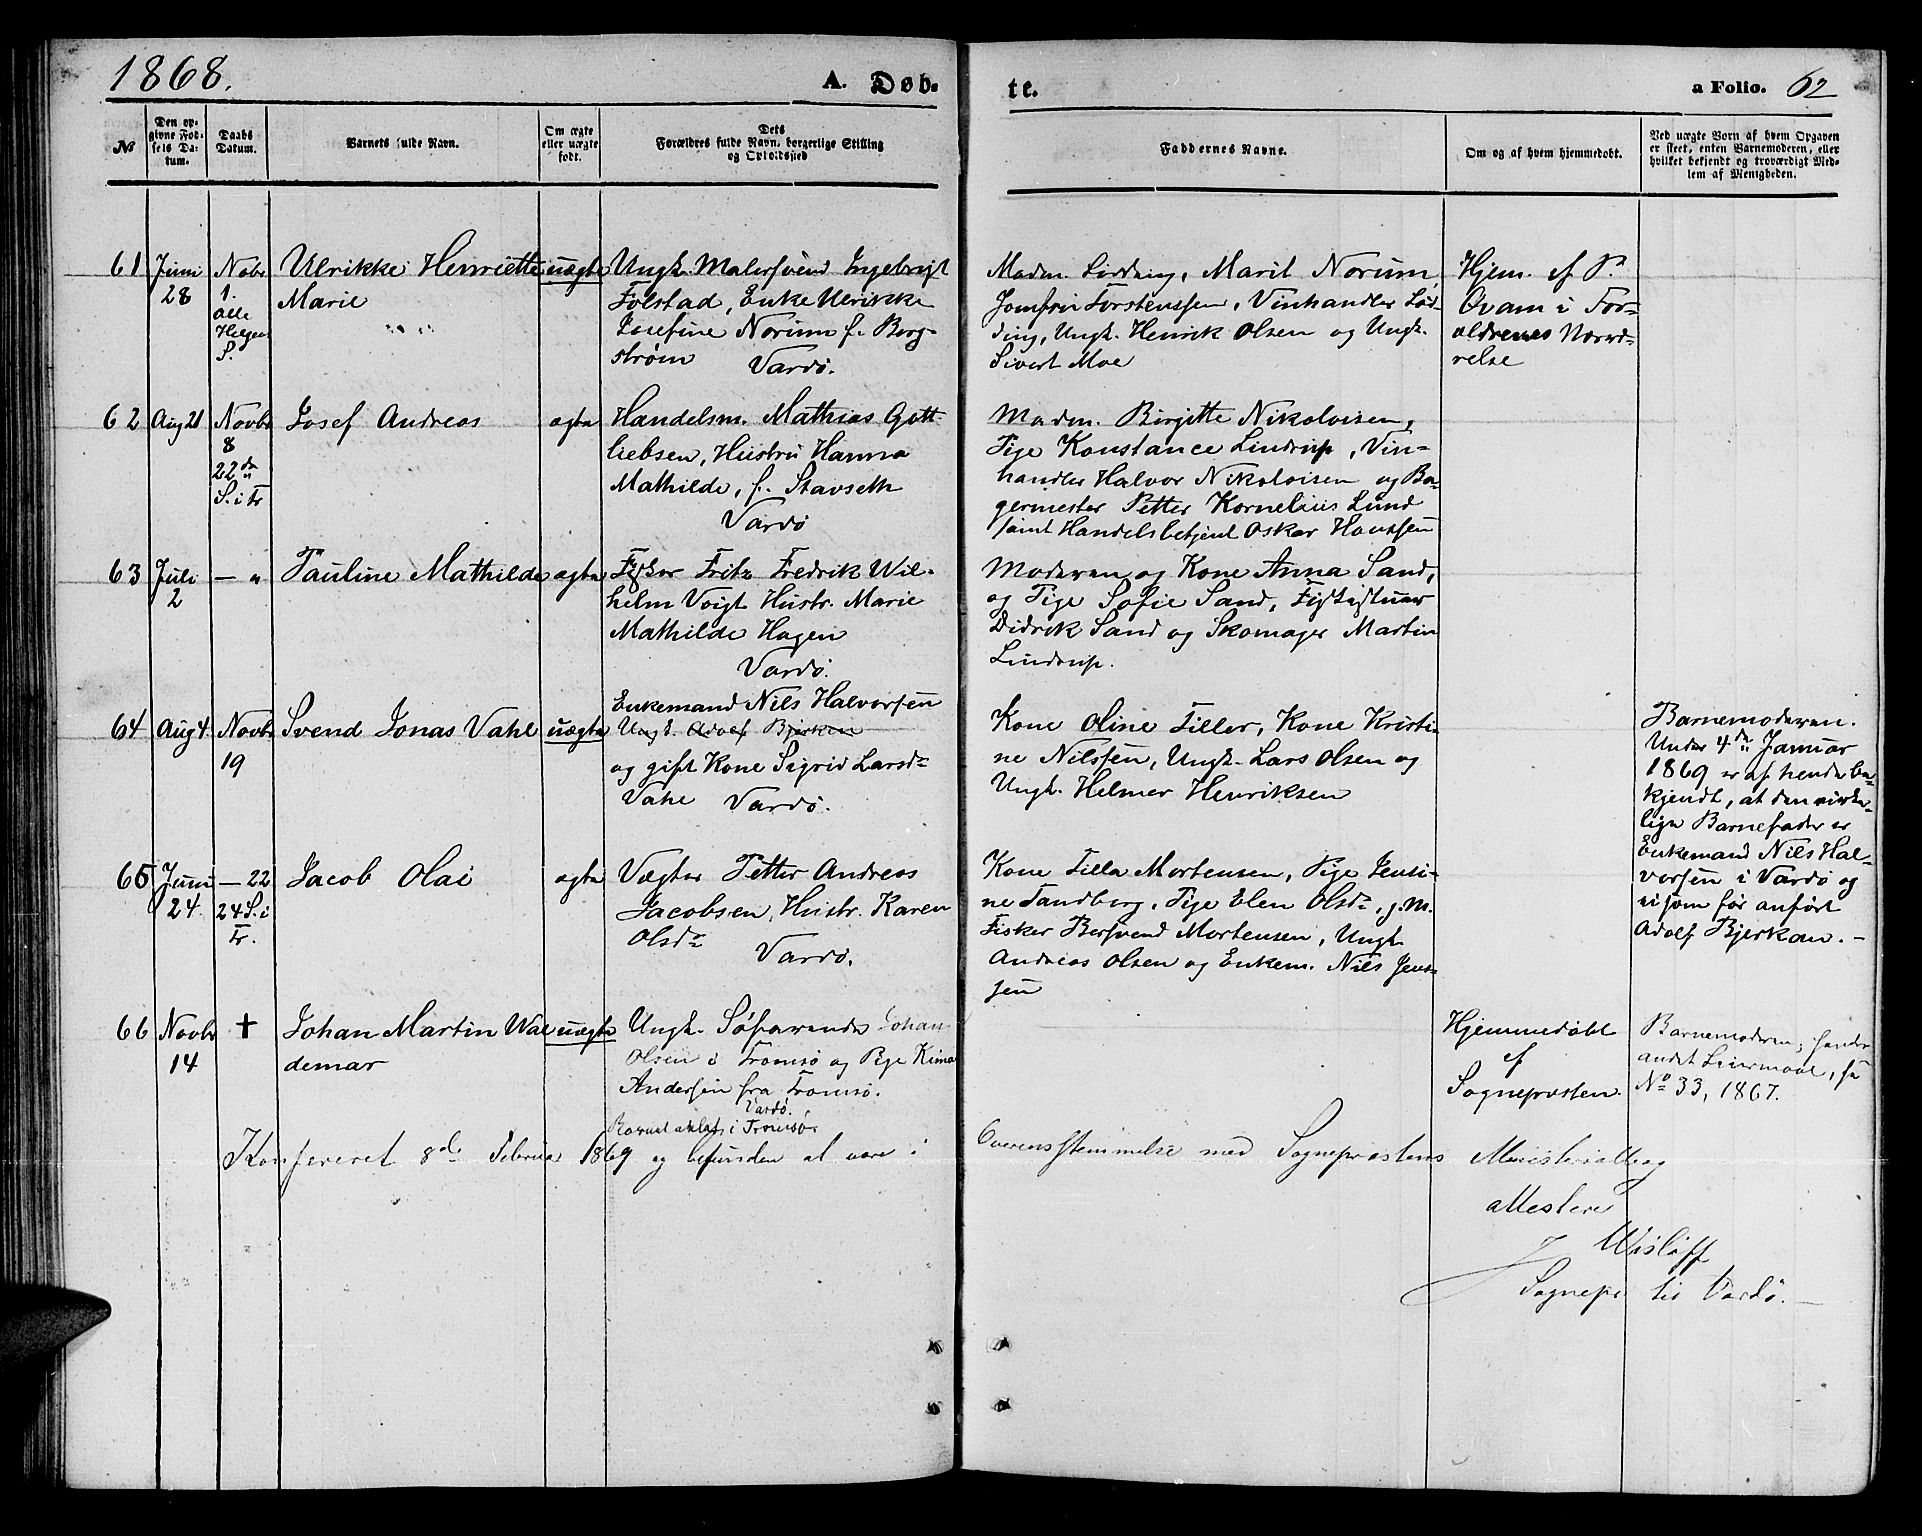 1868.
A. Døb-
te.
a Folio. 62
No
Den op-
givne Fød-
sels Da-
tum.
Daabs
Datum.
Barnets fulde Navn.
Om ægte
eller uægte
født.
Dets
Forældres fulde Navn, borgerlige Stilling
og Opholdssted
Faddernes Navne.
Om og af hvem hjemmedøbt.
Ved uægte Børn af hvem Opgaven
er skeet, enten Barnemoderen, eller
hvilket bekjendt og troværdigt Med-
lem af Menigheden.
61
Juni
28
Nobr
1.
Alle
Helgen
S.
Ulrikke Henriette
Marie
uægte
Ungk. Malersvend Ingebrigt
Folstad, Enke Ulrikke
Josefine Norum f. Borg-
strøm Vardø.
Madm. Lødding, Marit Norum,
Jomfru Torstenssen, Vinhandler Lød-
ding, Ungk. Henrik Olsen og Ungk.
Sivert Moe
Hjem. af P.
Qvam i For-
ældrenes Nærvæ-
relse
62
Aug 21
Novbr
8
22de
S. i Tr
Josef Andreas
ægte
Handelsm. Mathias Gott-
liebsen, Hustru Hanna
Mathilde, f. Stavseth
Vardø
Madm. Birgitte Nikolaisen,
Pige Konstance Lindrup, Vin-
handler Halvor Nikolaisen og Ba-
germester Petter Kornelius Lund
samt Handelsbetjent Oskar Hanssen
63
Juli
2
— "
Pauline Mathilde
ægte
Fisker Fritz Fredrik Wil-
helm Voigt Hustr. Marie
Mathilde Hagen
Vardø.
Moderen og Kone Anna Sand,
og Pige Sofie Sand,
Didrik Sand og Skomager Martin
Lindrup.
64
Aug 4
Novbr
19
Svend Jonas Vahl
uægte
Enkemand Nils Halvorsen
Ungk. Adolf Bjerkan
og gift Kone Sigrid Larsdr
Vahl Vardø.
Kone Oline Tiller, Kone Kristi-
ne Nilsen, Ungk. Lars Olsen og
Ungk. Helmer Henriksen
Barnemoderen.
Under 4de Januar
1869 er af hende be-
kjendt, at den virke-
lige Barnefader er
Enkemand Nils Hal-
vorsen i Vardø og
ei som før anført
Adolf Bjerkan. —
65
Juni
24
— 22
24 S. i
Tr.
Jacob Olai
ægte
Vægter Petter Andreas
Jacobsen, Hustr. Karen
Olsdr
Vardø.
Kone Tilla Mortensen, Pige Jensi-
ne Tandberg, Pige Elen Olsdr, g. M.
Fisker Bersvend Mortensen, Ungk.
Andreas Olsen og Enkem. Nils Jens-
sen
66
Novbr
14
+
Johan Martin Wal
demar
uægte
Ungk. Søfarende Johan
Olsen i Tromsø og Pige
Andersen fra Tromsø.
Vardø.
i Tromsø
Hjemmedøbt
af
Sognepresten.
Barnemoderen; hendes
andet Leiermaal, se
No 33, 1867.
Konfereret 8de Februar 1869 og befunden at være i
Overensstemmelse med Sogneprestens Ministerialbog
attesteres
Wisløff
Sognepr til Vardø. —